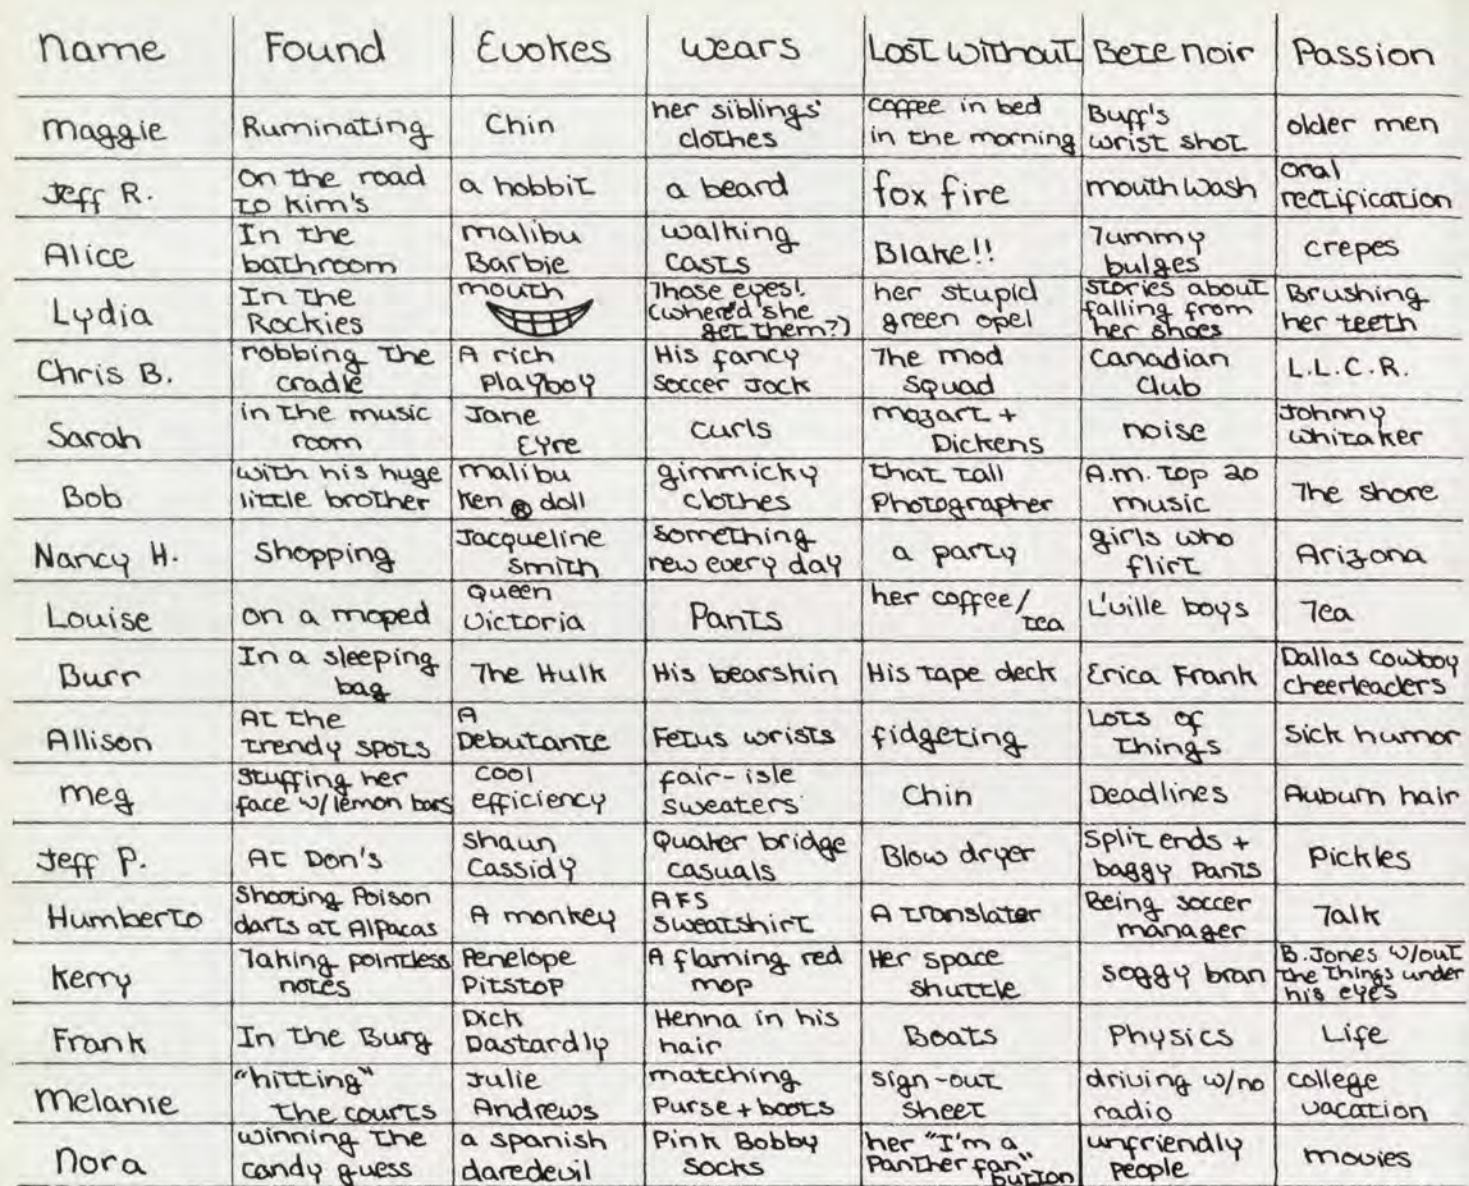 Name Found Evokes wears Lost without Bete noir Passion
Maggie Ruminating Chin her siblings' clothes coffee in bed in the morning Buff's wrist shot older men
Jeff R. on the road to Kim's a hobbit a beard fox fire mouth wash oral rectification
Alice In the bathroom malibu Barbie walking casts Blake!! Tummy bulges crepes
Lydia In the Rockies mouth Those eyes! (where'd she get them?) her stupid green opel stories about falling from her shoes Brushing her teeth
Chris B. robbing the cradle A rich Playboy His fancy soccer jock The mod squad Canadian Club L.L.C.R.
Sarah in the music room Jane Eyre curls mozart + Dickens noise Johnny whitaker
Bob with his huge little brother malibu Ken ® doll gimmicky clothes that tall Photographer A.M. top 20 music The shore
Nancy H. Shopping Jacqueline Smith something new every day a party girls who flirt Arizona
Louise on a moped Queen Victoria Pants her coffee/tea L'ville boys Tea
Burr In a sleeping bag The Hulk His bearskin His tape deck Erica Frank Dallas Cowboy cheerleaders
Allison At the trendy spots A Debutante Fetus wrists fidgeting Lots of things Sick humor
Meg stuffing her face w/lemon bars cool efficiency fair-isle sweaters Chin Deadlines Auburn hair
Jeff P. At Don's Shaun Cassidy Quaker bridge casuals Blow dryer Split ends + baggy Pants Pickles
Humberto Shooting Poison darts at Alpacas A monkey AFS Sweatshirt A translater Being soccer manager Talk
Kerry Taking pointless notes Penelope Pitstop A flaming red mop Her space shuttle soggy bran B. Jones w/out the things under his eyes
Frank In the Burg Dick Dastardly Henna in his hair Boats Physics Life
Melanie "hitting" the courts Julie Andrews matching Purse + boots sign-out sheet driving w/no radio college vacation
Nora winning the candy guess a spanish daredevil Pink Bobby socks her "I'm a Panther fan" button unfriendly People movies